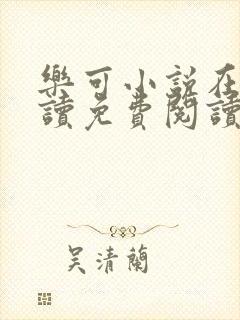 樂可小說在
讀免費閱讀
吴清蘭